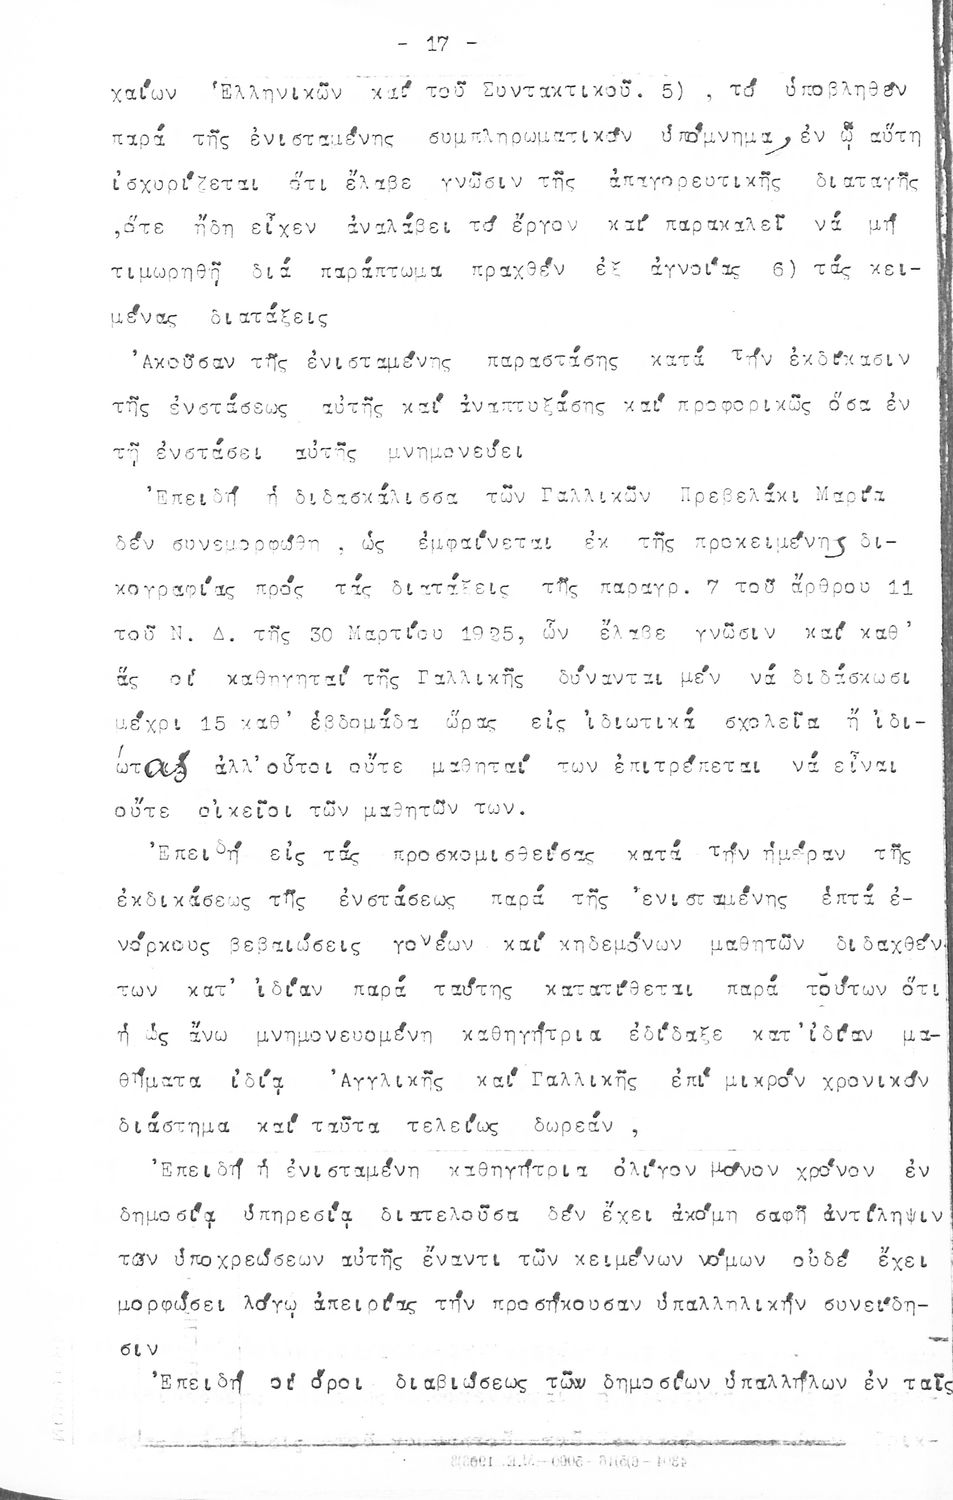 - 17 -
χαίων Ἑλληνικῶν καί τοῦ Συντακτικοῦ. 5) , τό ὑποβληθέν
παρά τῆς ἐνισταμένης συμπληρωματικόν ὑπόμνημα, ἐν ᾧ αὕτη
ἰσχυρίζεται ὅτι ἔλαβε γνῶσιν τῆς ἀπαγορευτικῆς διαταγῆς
,ὅτε ἤδη εἶχεν ἀναλάβει τό ἔργον καί παρακαλεῖ νά μή
τιμωρηθῇ διά παράπτωμα πραχθέν ἐξ ἀγνοίας 6) τάς κει-
μένας διατάξεις
Ἀκοῦσαν τῆς ἐνισταμένης παραστάσης κατά τήν ἐκδίκασιν
τῆς ἐνστάσεως αὐτῆς καί ἀναπτυξάσης καί προφορικῶς ὅσα ἐν
τῇ ἐνστάσει αὐτῆς μνημονεύει
Ἐπειδή ἡ διδασκάλισσα τῶν Γαλλικῶν Πρεβελάκι Μαρία
δέν συνεμορφώθη , ὡς ἐμφαίνεται ἐκ τῆς προκειμένης δι-
κογραφίας πρός τάς διατάξεις τῆς παραγρ. 7 τοῦ ἄρθρου 11
τοῦ Ν. Δ. τῆς 30 Μαρτίου 1925, ὧν ἔλαβε γνῶσιν καί καθ'
ἅς οἱ καθηγηταί τῆς Γαλλικῆς δύνανται μέν νά διδάσκωσι
μέχρι 15 καθ' ἑβδομάδα ὥρας εἰς ἰδιωτικά σχολεῖα ἤ ἰδι-
ώτας ἀλλ' οὗτοι οὔτε μαθηταί των ἐπιτρέπεται νά εἶναι
οὔτε οἰκεῖοι τῶν μαθητῶν των.
Ἐπειδή εἰς τάς προσκομισθείσας κατά τήν ἡμέραν τῆς
ἐκδικάσεως τῆς ἐνστάσεως παρά τῆς ἐνισταμένης ἑπτά ἐ-
νόρκους βεβαιώσεις γονέων καί κηδεμόνων μαθητῶν διδαχθέν
των κατ' ἰδίαν παρά ταύτης κατατίθεται παρά τούτων ὅτι
ἡ ὡς ἄνω μνημονευομένη καθηγήτρια ἐδίδαξε κατ'ἰδίαν μα-
θήματα ἰδίᾳ Ἀγγλικῆς καί Γαλλικῆς ἐπί μικρόν χρονικόν
διάστημα καί ταῦτα τελείως δωρεάν ,
Ἐπειδή ἡ ἐνισταμένη καθηγήτρια ὀλίγον μόνον χρόνον ἐν
δημοσίᾳ ὑπηρεσίᾳ διατελοῦσα δέν ἔχει ἀκόμη σαφῆ ἀντίληψιν
των ὑποχρεώσεων αὐτῆς ἔναντι τῶν κειμένων νόμων οὐδέ ἔχει
μορφώσει λόγῳ ἀπειρίας τήν προσήκουσαν ὑπαλληλικήν συνείδη-
σιν
Ἐπειδή οἱ ὅροι διαβιώσεως τῶν δημοσίων ὑπαλλήλων ἐν ταῖς